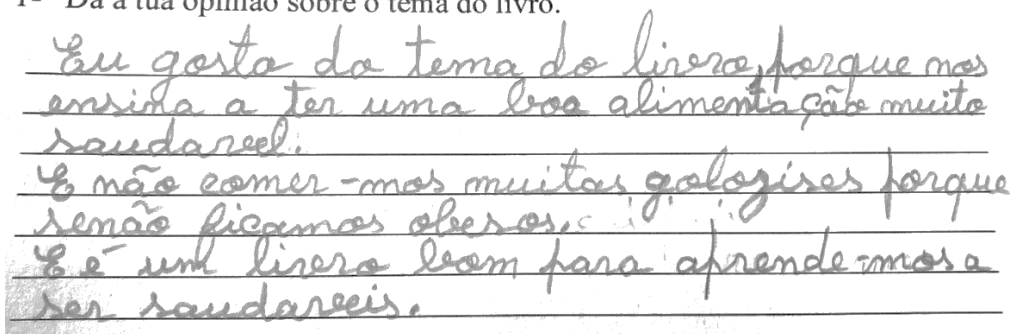 1- Dá a tua opinião sobre o tema do livro.
Eu gosto do tema do livro, porque nos
ensina a ter uma boa alimentação muito
saudavel.
E não comer-mos muitas gologises porque
senão ficamos obesos.
E é um livro bom para aprende-mos a
ser saudaveis.